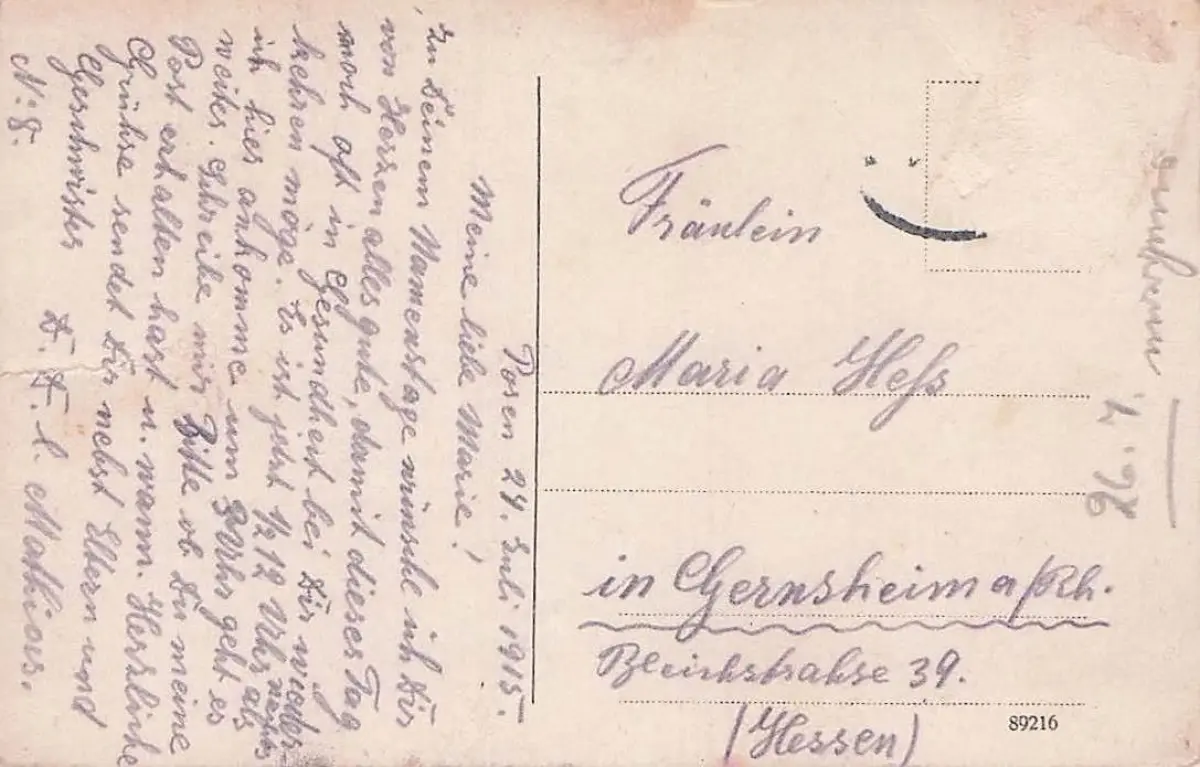 Posen 24. Juli 1915.
Meine liebe Marie!
Zu Deinem Namenstage wünsche ich Dir
von Herzen alles gute, damit dieser Tag
noch oft in Gesundheit bei Dir wieder-
kehren möge. Es ist jetzt ½ 12 Uhr nachts als
ich hier ankomme um 3 Uhr geht es
weiter. Schreibe mir Bitte ob Du meine
Post erhalten hast u. wann. Herzliche
Grühse sendet Dir nebst Eltern und
Geschwister D. D. l. Mathias.
N: 8.
Fräulein
Maria Heß
in Gernsheim a/Rh.
Bleichstrahse 39.
(Hessen)
89216